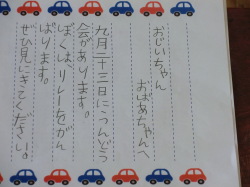 おじいちゃん
おばあちゃんへ
九月二十三日にうんどう
会があります。
ぼくは、リレーをがん
ばります。
ぜひ見にきてください。